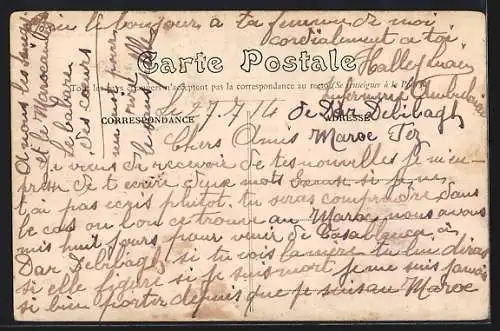 le bonjour a ta femme de moi
cordialement a toi
Carte Postale
Tous les pays étrangers n'acceptent pas la correspondance au recto (Se renseigner à la Poste)
infirmerie Ambulance
de Dar Debibagh
Maroc Fez
CORRESPONDANCE
ADRESSE
Le 27/7/14
Chers Amis
je viens de recevoir de tes nouvelles je m'em-
presse de t ecrire deux mots Excuse si je ne
t'ai pas ecris plutot. tu seras comprendre dans
le cas ou l'on ce trouve au Maroc nous avons
mis huit jours pour venir de Casablanca a
Dar Debibagh si tu vois la mere tu lui diras
si elle figure si je suis mort je me suis jamais
si bien porter depuis que je suis au Maroc
A nous les
et le Marocain
le babare
des coeurs